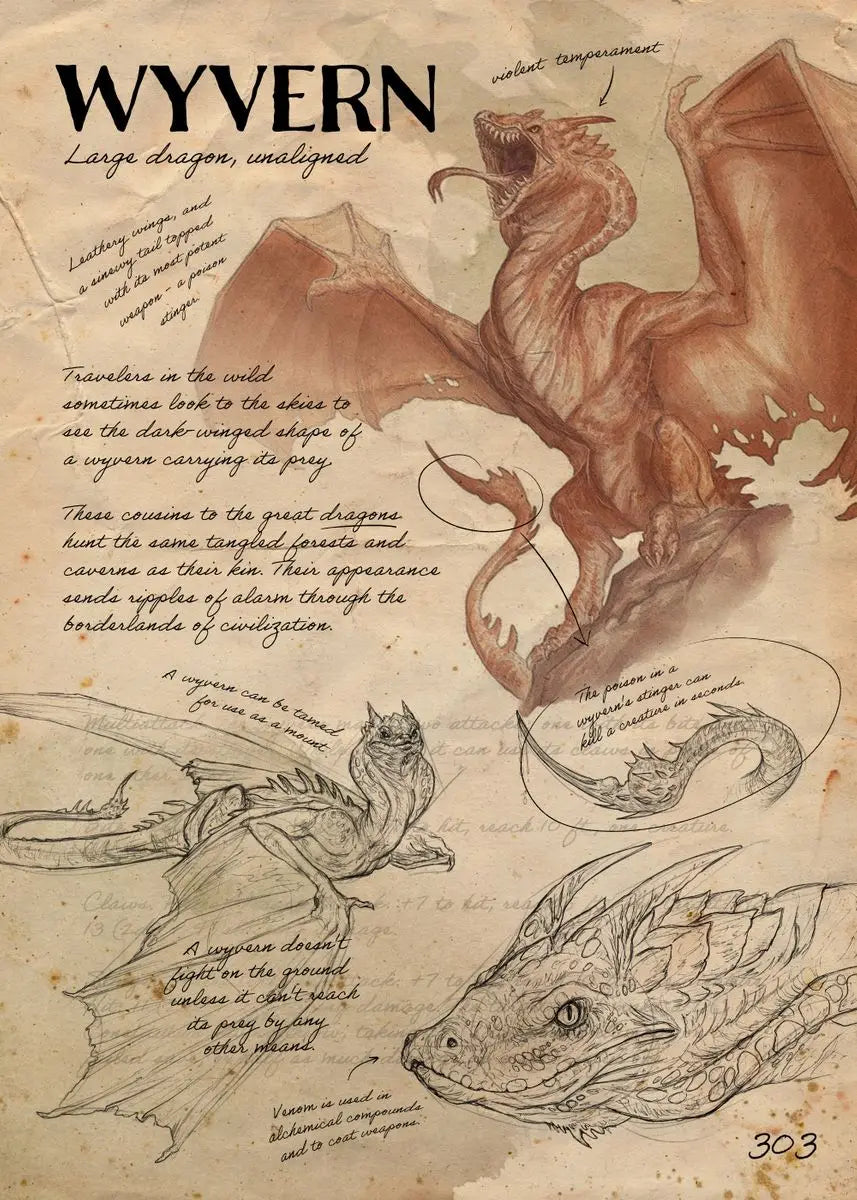 WYVERN
Large dragon, unaligned
violent temperament
Leathery wings, and
a sinewy tail topped
with its most potent
weapon - a poison
stinger.
Travelers in the wild
sometimes look to the skies to
see the dark-winged shape of
a wyvern carrying its prey.
These cousins to the great dragons
hunt the same tangled forests and
caverns as their kin. Their appearance
sends ripples of alarm through the
borderlands of civilization.
A wyvern can be tamed
for use as a mount.
The poison in a
wyvern's stinger can
kill a creature in seconds.
Multiattack two attacks: one bite
one with it can use its claws of
one other
hit, reach 10 ft., one creature.
Claws. +7 to hit,
13
A wyvern doesn't
fight on the ground
unless it can't reach
its prey by any
other means.
+7
damage
Venom is used in
alchemical compounds
and to coat weapons.
303